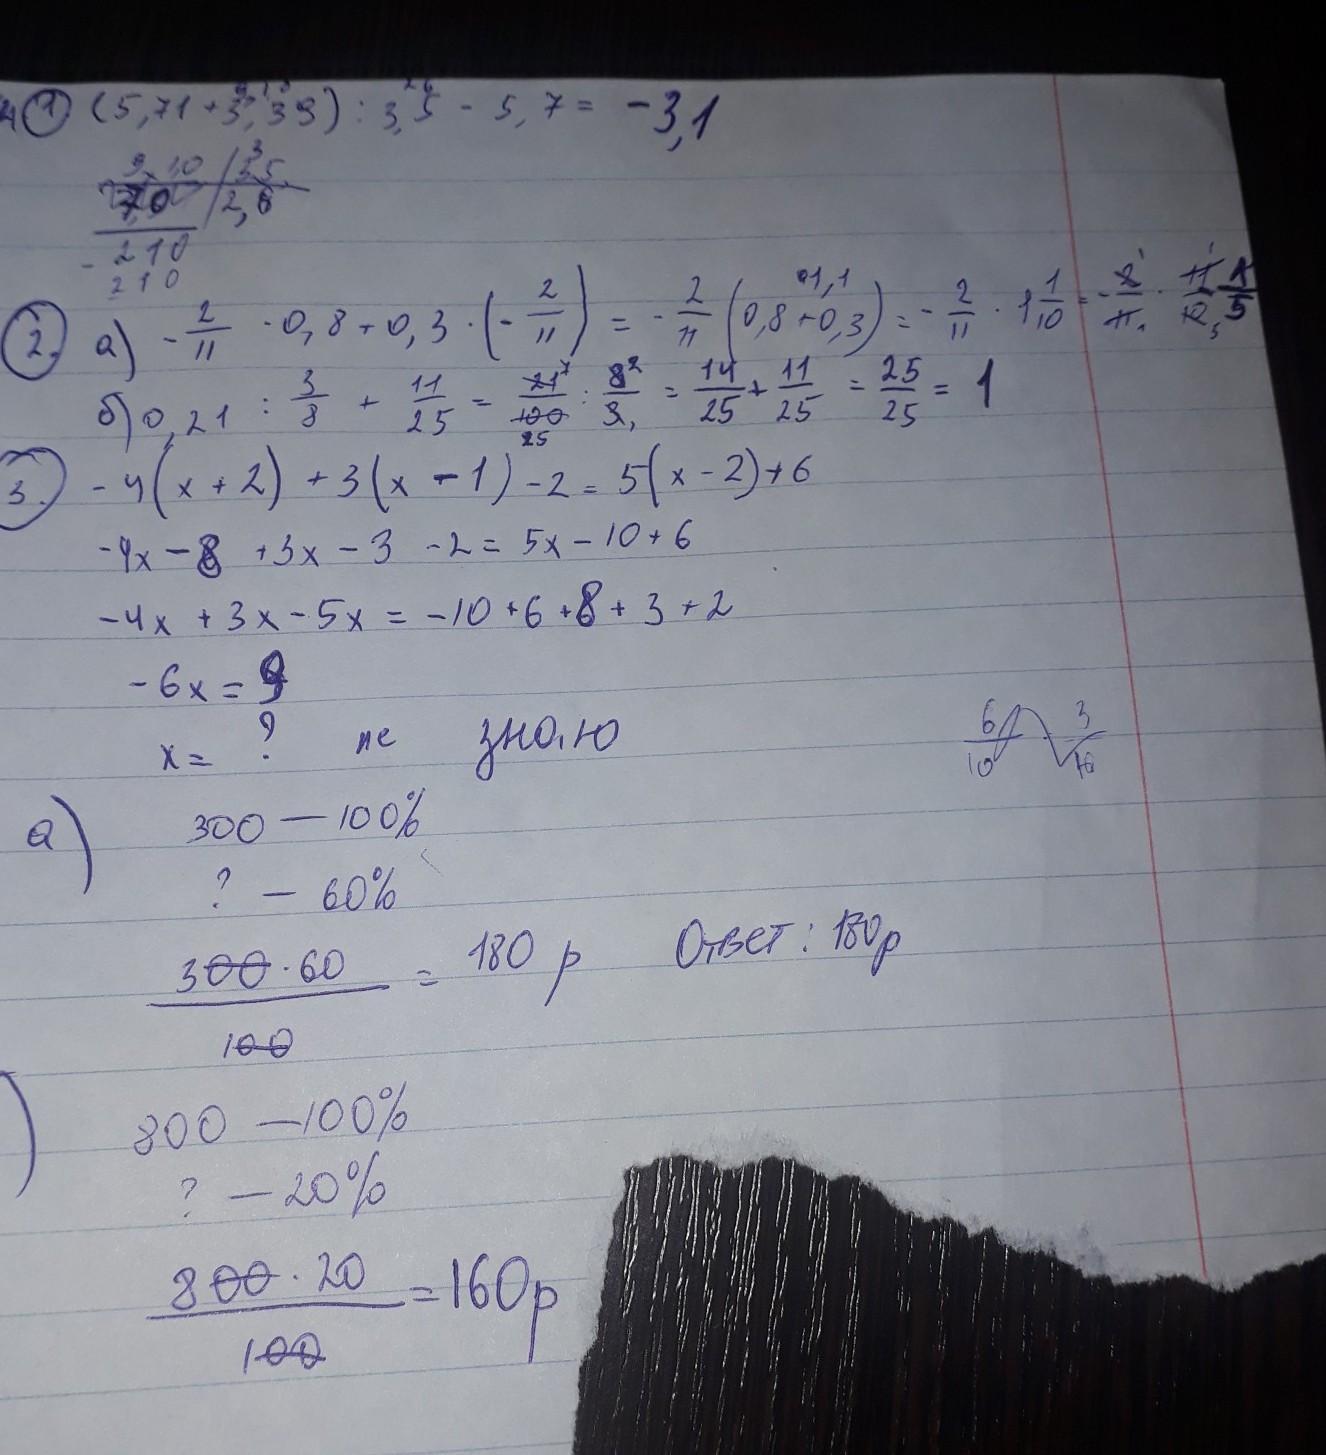 ① (5,71 + 3,39) : 3,5 - 5,7 = -3,1
9,10 / 3,5
70 / 2,6
- 210
210
2. а) - 2/11 · 0,8 + 0,3 · (- 2/11) = - 2/11 (0,8 + 0,3) = - 2/11 · 1 1/10 = - 2/11 · 11/10 1/5
б) 0,21 : 3/8 + 11/25 = 21/100 : 8/3 = 14/25 + 11/25 = 25/25 = 1
3. -4(x + 2) + 3(x - 1) - 2 = 5(x - 2) + 6
-4x - 8 + 3x - 3 - 2 = 5x - 10 + 6
-4x + 3x - 5x = -10 + 6 + 8 + 3 + 2
-6x = 9
x = ? не знаю
6/10 3/16
а) 300 — 100%
? — 60%
300 · 60 / 100 = 180 р Ответ: 180р
) 800 — 100%
? — 20%
800 · 20 / 100 = 160р